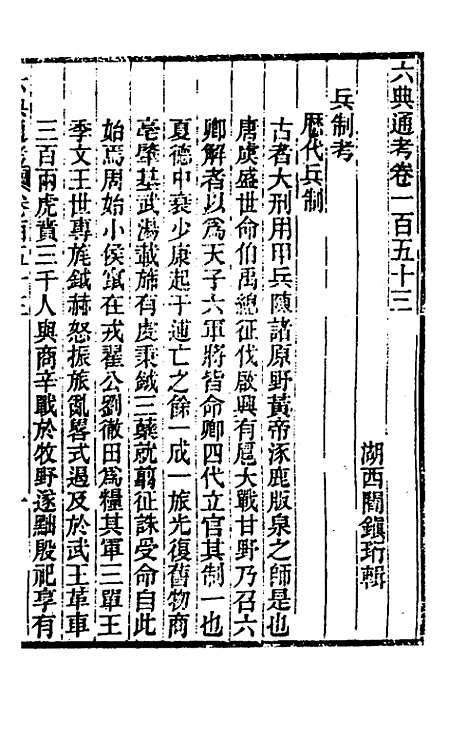 六典通考卷一百五十三
湖西閻鎭珩輯
兵制考
歷代兵制
古者大刑用甲兵陳諸原野黃帝涿鹿版泉之師是也
唐虞盛世命伯禹總征伐啟興有扈大戰甘野乃召六
卿解者以爲天子六軍將皆命卿四代立官其制一也
夏德中衰少康起于逋亡之餘一成一旅光復舊物商
亳肇基武湯載旆有虔秉鉞三蘖就翦征誅受命自此
始焉周始小侯竄在戎翟公劉徹田爲糧其軍三單王
季文王世專旄鉞赫怒振旅亂畧式遏及於武王革車
三百兩虎賁三千人與商辛戰於牧野遂黜殷祀享有